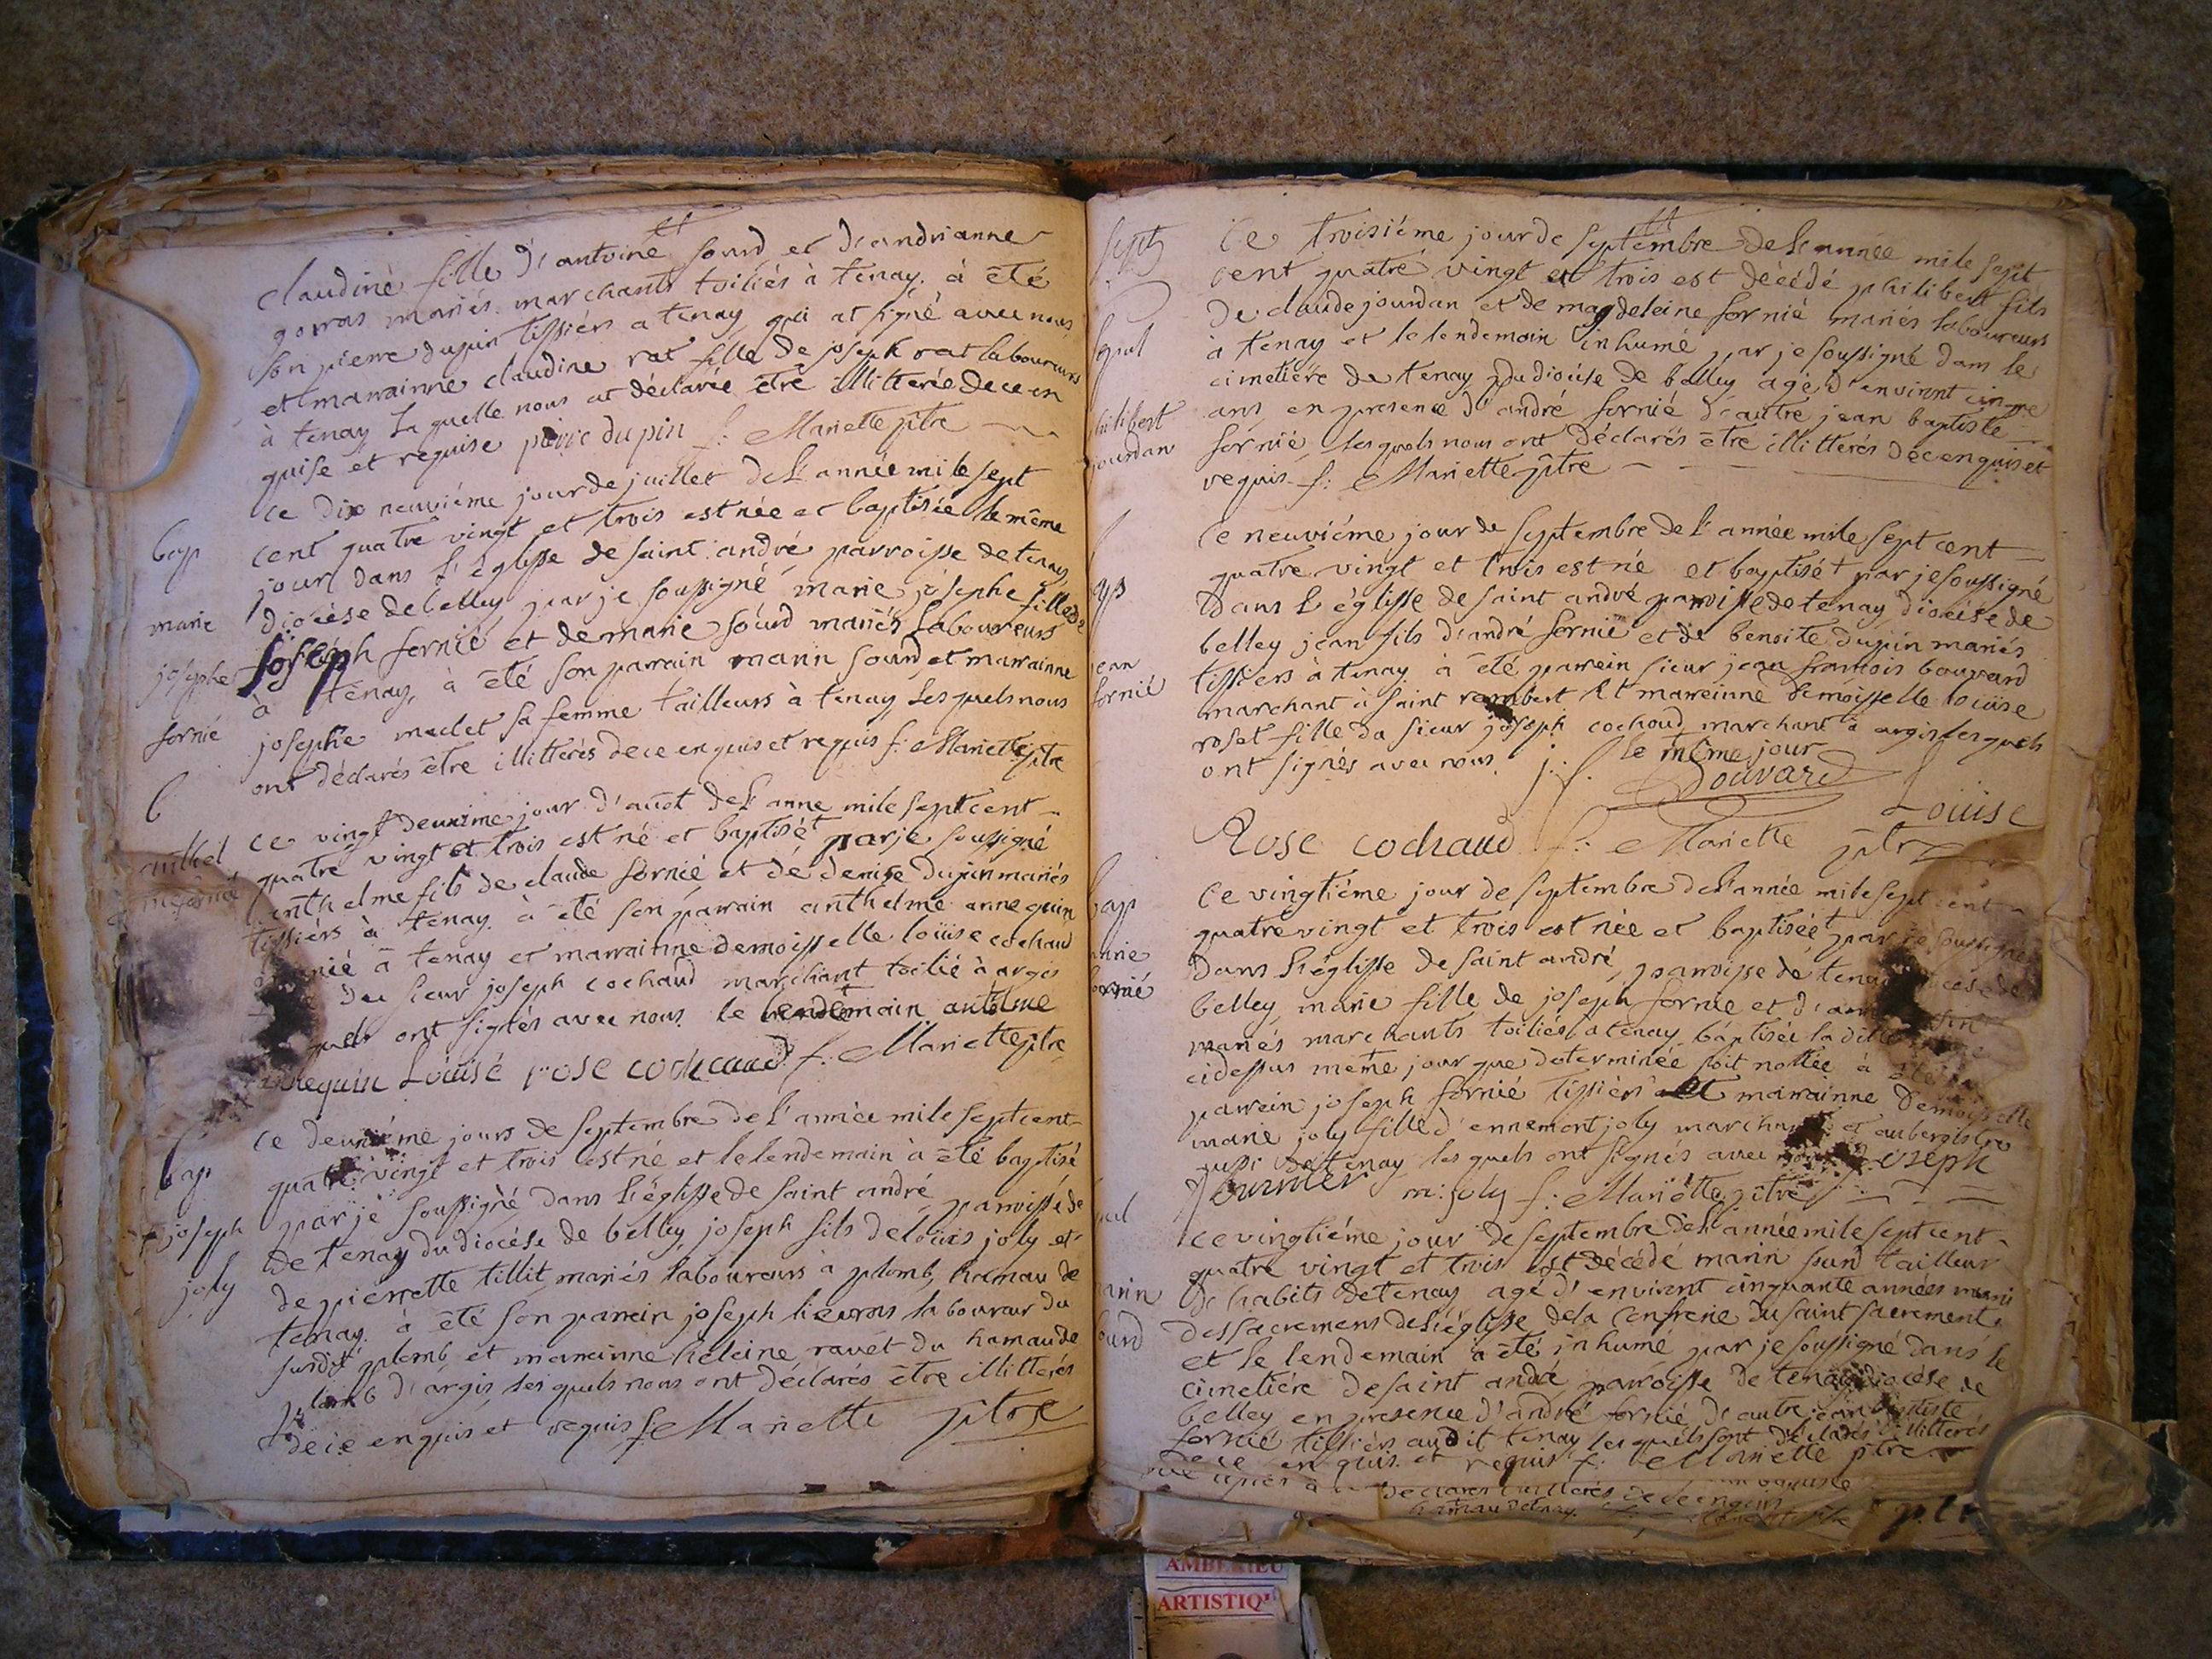 claudine fille d'antoine sourd et d'andrianne
gorras mariés marchants toiliés à tenay. à été
son pierre dupin tissiérs a tenay qui at signé avec nous
et marrainne claudine rat fille de joseph rat laboureurs
à tenay la quelle nous at déclarée être illitterée de ce en
quise et requise piere dupin f: Mariette ptre
bap
marie
josephe
fornié
ce dix neuviéme jour de juillet de l'année mile sept
cent quatre vingt et trois est née et baptisée le même
jour dans l'églisse de saint andré parroisse de tenay
diocése de belley par je soussigné marie josephe fille de
joseph fornié et de marie sourd mariés laboureurs
à tenay, à été son parrain marin sourd et marrainne
josephe maclet sa femme tailleurs à tenay les quels nous
ont déclarés être illitterés de ce enquis et requis f: Mariette ptre
b
ce vingt deuxime jour d'aût de l'anne mile sept cent
quatre vingt et trois est né et baptisét par je soussigné
anthelme fils de claude fornié et de denise dupin mariés
tissiérs à tenay. à été son parrain anthelme annequin
à tenay et marrainne demoisselle loüise cochaud
du sieur joseph cochaud marchant toilié à argis
quels ont signés avec nous le lendemain antelme
nequin Loüise rose cochaud f: Mariette ptre
bap
joseph
joly
ce deuxiéme jours de septembre de l'année mile sept cent
quatre vingt et trois est né et le lendemain à été baptisé
par je soussigné dans l'églisse de saint andré parroisse de
de tenay du diocése de belley joseph fils de loüis joly et
de pierrette tillit mariés laboureurs à plomb, hamau de
tenay. à été son parrein joseph lieuras laboureur du
susdit plomb et marreinne heleine ravet du hamau de
plomb d'argis les quels nous ont déclarés être illitterés
de ce enquis et requis f Mariette ptre
sept
sepul
philibert
jourdan
Ce troisiéme jour de septembre de l'année mile sept
cent quatre vingt et trois est décédé philibert fils
de claude jourdan et de magdeleine fornié mariés laboureurs
à tenay et le lendemain inhumé par je soussigné dans le
cimetiére de tenay du diocése de belley agé d'environt cinque
ans, en presence d'andré fornié d'autre jean baptiste
fornié, les quels nous ont déclarés être illitterés de ce enquis et
requis. f: Mariette ptre
jean
fornié
Ce neuviéme jour de septembre de l'année mile sept cent
quatre vingt et trois est né et baptisét par je soussigné
dans l'églisse de saint andré parroisse de tenay diocése de
belley jean fils d'andré fornié et de benoite dupin mariés
tissiers à tenay à été parrein sieur jean francois bouvard
marchant à saint rambert et marreinne demoisselle loüise
roset fille du sieur joseph cochoud marchant à argis les quels
ont signés avec nous. le même jour
j. f. Bouvard Loüise
Rose cochaud f: Mariette ptre
bap
marie
fornié
Ce vingtiéme jour de septembre de l'année mile sept cent
quatre vingt et trois est née et baptisée par je soussigné
dans l'églisse de saint andré, parroisse de tenay diocése de
belley, marie fille de joseph fornié et d'
mariés marchants toiliés à tenay, baptisée la dite
cidessus même jour que determinée soit nottée à été
parrein joseph fornié tissiérs et marrainne demoisselle
marie joly fille d'ennemont joly marchant et aubergistre
aussi de tenay les quels ont signés avec nous. joseph
fournier m: joly f: Mariette ptre
marin
sourd
ce vingtiéme jour de septembre de l'année mile sept cent
quatre vingt et trois est décédé marin surd tailleur
d'habits de tenay agé d'environt cinquante années muni
des sacremens de l'églisse de la confrerie du saint sacrement
et le lendemain a été inhumé par je soussigné dans le
cimetiére de saint andré parroisse de tenay diocése de
belley en presence d'andré fornié, d'autre jean baptiste
fornié tissiérs audit tenay les quels ont déclarés illitterés
de ce enquis et requis f. Mariette ptre
baptiste
declarés illitterés de ce enquis
hamau de tenay.
ptre
AMBERIEU
ARTISTIQ